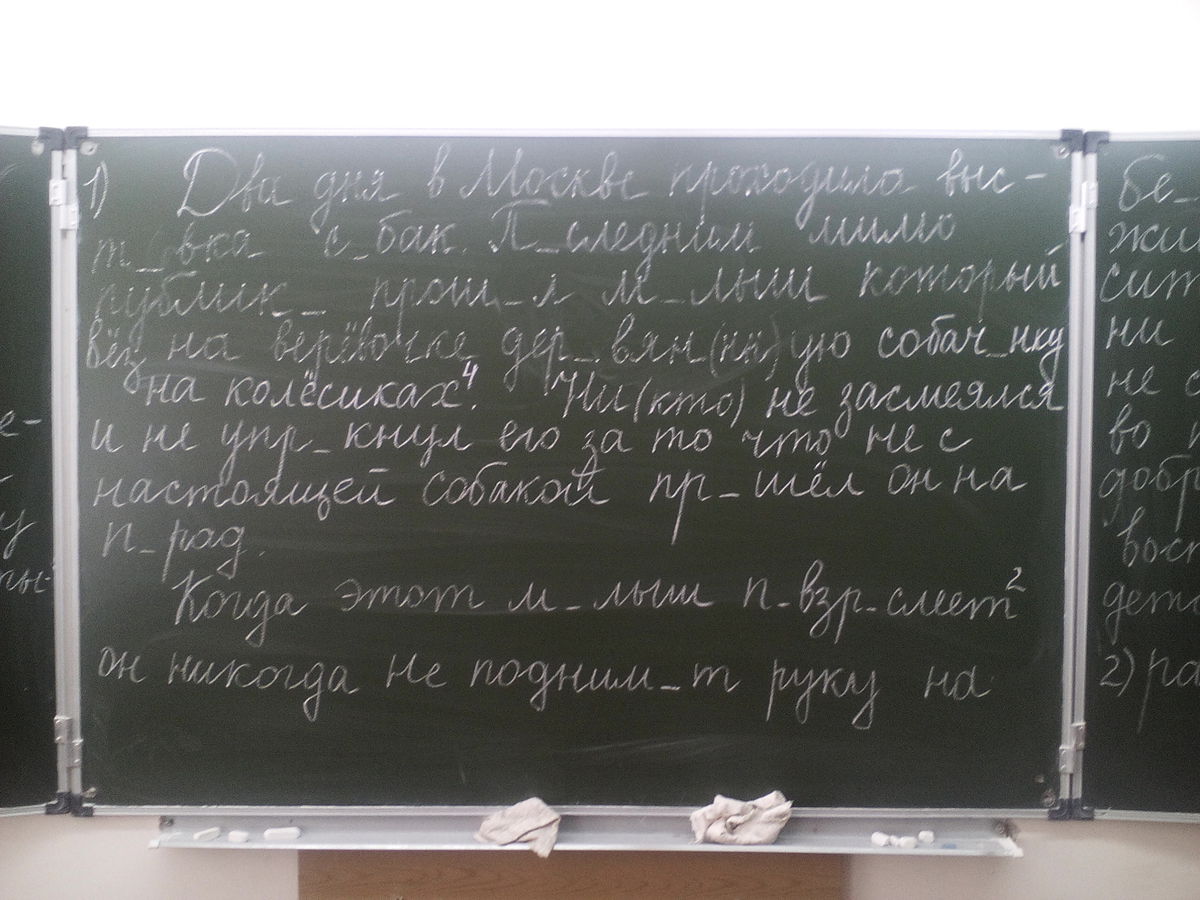 1) Два дня в Москве проходила выс-
т_вка с_бак. П_следним мимо
публик_ прош_л м_лыш который
вёз на верёвочке дер_вян(нн)ую собач_нку
на колёсиках⁴. Ни(кто) не засмеялся
и не упр_кнул его за то что не с
настоящей собакой пр_шёл он на
п_рад.
Когда этот м_лыш п_взр_слеет²
он никогда не подним_т руку на
бе_
жи
сит
ни
не с
во
добр
вост
дето
2) ра